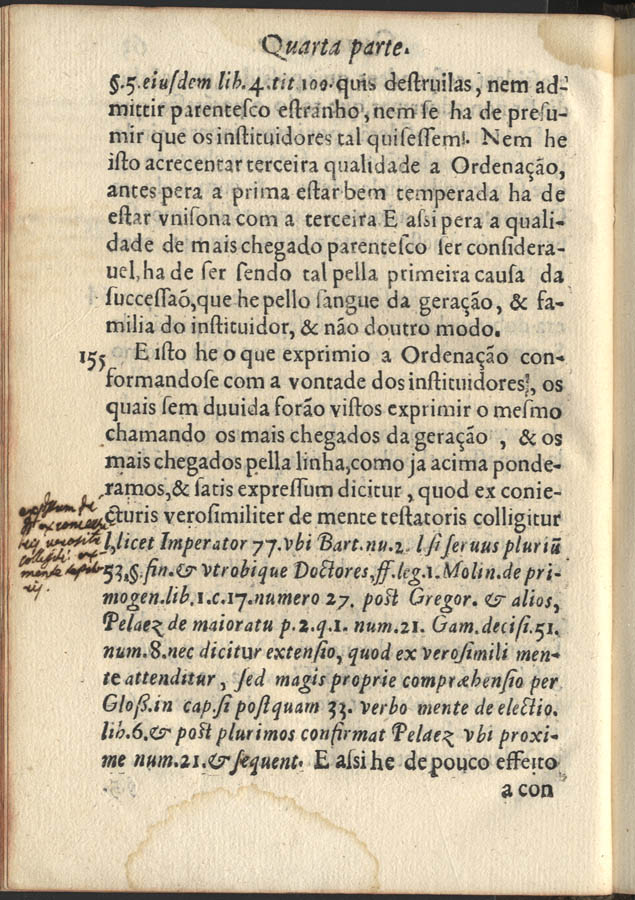 Quarta parte.
§.5.eiuſdem lib.4.tit 100.quis deſtruilas, nem ad-
mittir parenteſco eſtranho, nem ſe ha de preſu-
mir que os inſtituidores tal quiſeſſem. Nem he
iſto acrecentar terceira qualidade a Ordenação,
antes pera a prima eſtar bem temperada ha de
eſtar vniſona com a terceira E aſsi pera a quali-
dade de mais chegado parenteſco ſer conſidera-
uel, ha de ſer ſendo tal pella primeira cauſa da
ſucceſſaõ, que he pello ſangue da geração, & fa-
milia do inſtituidor, & não doutro modo.
155 E iſto he o que exprimio a Ordenação con-
formandoſe com a vontade dos inſtituidores, os
quais ſem duuida forão viſtos exprimir o meſmo
chamando os mais chegados da geração , & os
mais chegados pella linha, como ja acima ponde-
ramos, & ſatis expreſſum dicitur, quod ex conie-
cturis veroſimiliter de mente teſtatoris colligitur
l, licet Imperator 77. vbi Bart. nu. 2. l ſi ſeruus pluriũ
53.§. fin. & vtrobique Doctores, ff. leg. 1. Molin. de pri-
mogen. lib. 1. c. 17. numero 27. poſt Gregor. & alios,
Pelaez de maioratu p. 2. q. 1. num. 21. Gam. deciſi. 51.
num. 8. nec dicitur extenſio, quod ex veroſimili men-
te attenditur, ſed magis proprie compræhenſio per
Gloß. in cap. ſi poſtquam 33. verbo mente de electio.
lib. 6. & poſt plurimos confirmat Pelaez vbi proxi-
me num. 21. & ſequent. E aſsi he de pouco effeito
a con
de
ex
colligiti
mente